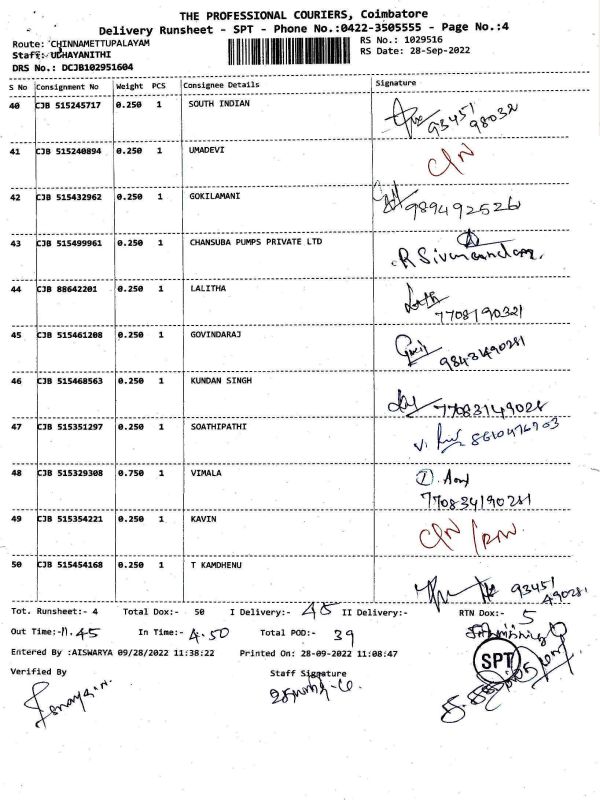 THE PROFESSIONAL COURIERS, Coimbatore
Delivery Runsheet - SPT - Phone No.:0422-3505555 - Page No.:4
Route: CHINNAMETTUPALAYAM
RS No.: 1029516
Staff: UDHAYANITHI
RS Date: 28-Sep-2022
DRS No.: DCJB102951604
S No Consignment No Weight PCS Consignee Details Signature
40 CJB 515245717 0.250 1 SOUTH INDIAN 93451 98032
41 CJB 515240894 0.250 1 UMADEVI C/N
42 CJB 515432962 0.250 1 GOKILAMANI 989492526
43 CJB 515499961 0.250 1 CHANSUBA PUMPS PRIVATE LTD
44 CJB 88642201 0.250 1 LALITHA 7708190321
45 CJB 515461208 0.250 1 GOVINDARAJ 98431490281
46 CJB 515468563 0.250 1 KUNDAN SINGH 77083149028
47 CJB 515351297 0.250 1 SOATHIPATHI
48 CJB 515329308 0.750 1 VIMALA
770834190281
49 CJB 515354221 0.250 1 KAVIN C/N
50 CJB 515454168 0.250 1 T KAMDHENU 93451
490281
Tot. Runsheet:- 4 Total Dox:- 50 I Delivery:- 45 II Delivery:- RTN Dox:- 5
Out Time:- 11.45 In Time:- 4.50 Total POD:- 39
Entered By :AISWARYA 09/28/2022 11:38:22 Printed On: 28-09-2022 11:08:47
SPT
Verified By Staff Signature